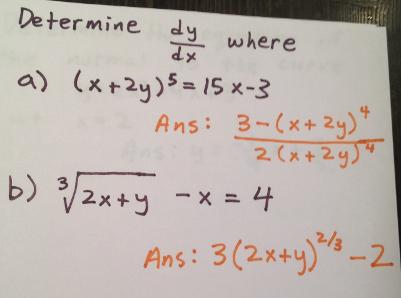 Determine dy/dx where
a) (x+2y)⁵ = 15x-3
Ans: 3-(x+2y)⁴ / 2(x+2y)⁴
b) ³√(2x+y) - x = 4
Ans: 3(2x+y)^2/3 - 2